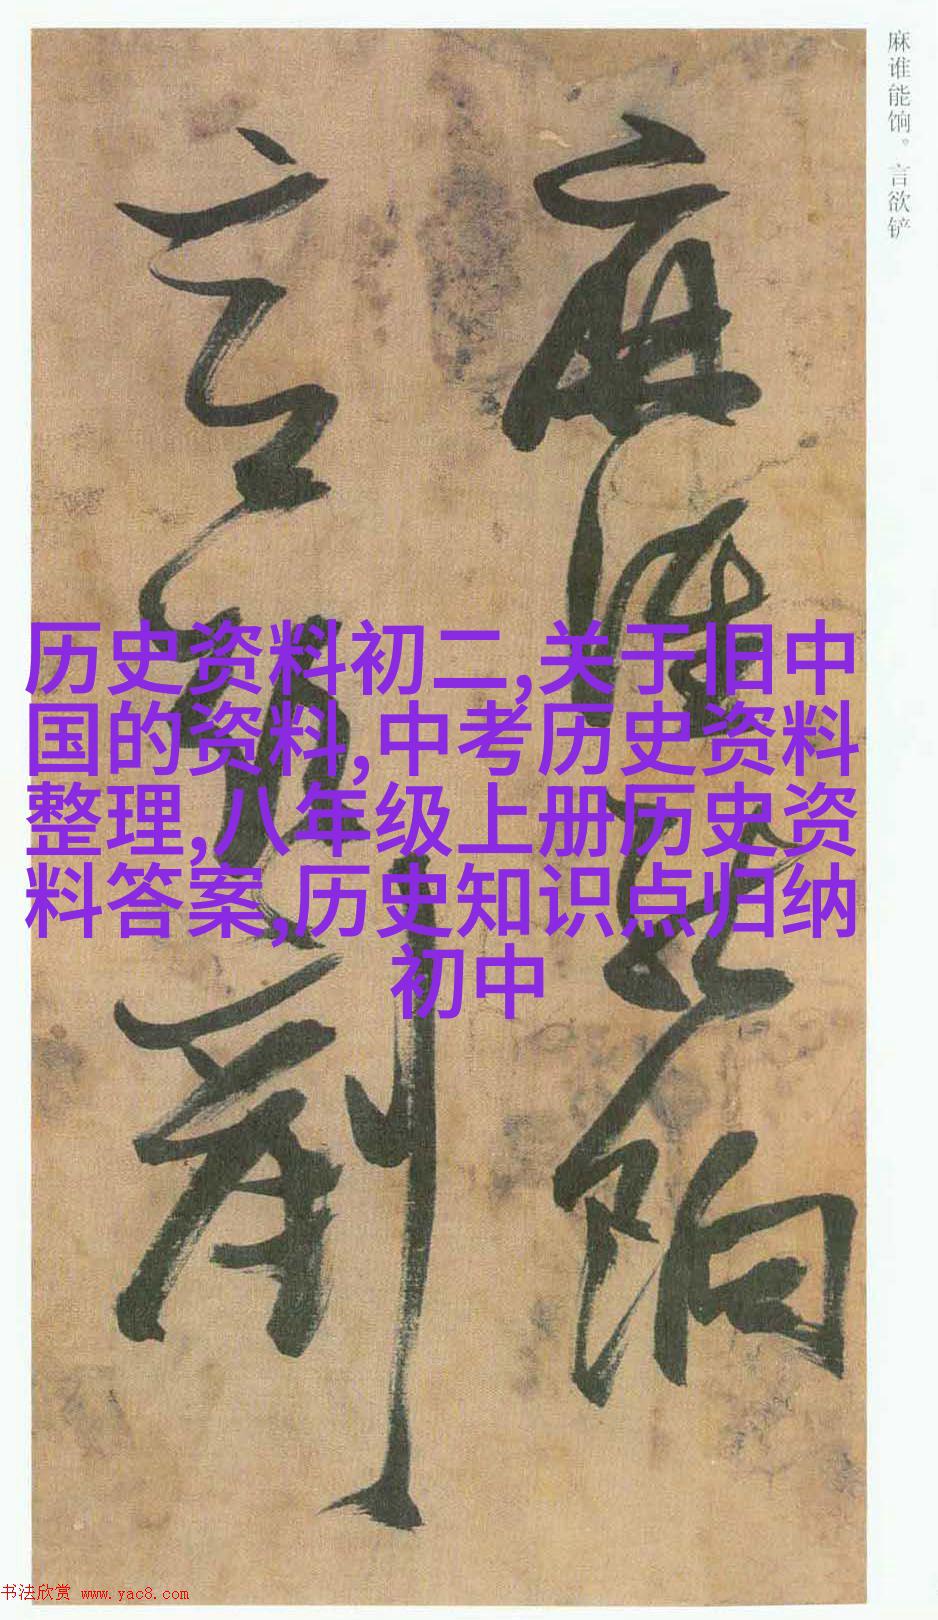 麻谁能饷。言欲铲
麻谁能饷
言欲剷
历史资料初二,关于旧中
国的资料,中考历史资料
整理,八年级上册历史资
料答案,历史知识点归纳
初中
书法欣赏 www.yac8.com